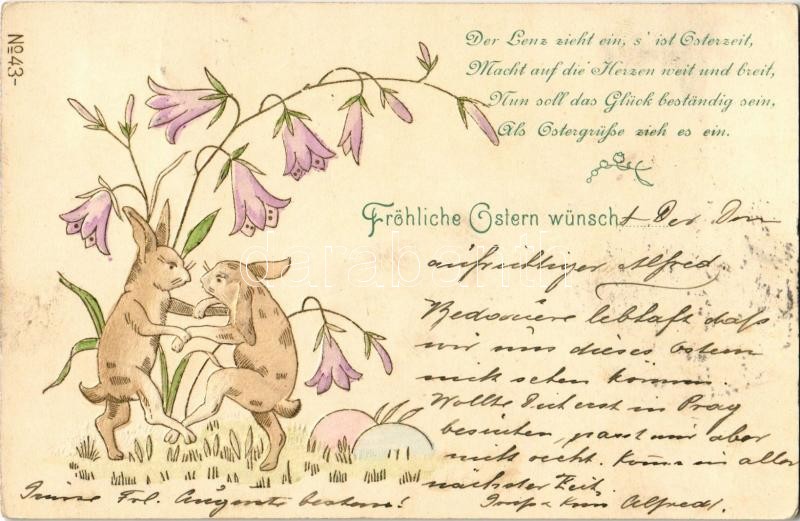 No 43-
Der Lenz zieht ein, s' ist Osterzeit,
Macht auf die Herzen weit und breit,
Nun soll das Glück beständig sein,
Als Ostergrüße zieh es ein.
Fröhliche Ostern wünscht Dir Dein
aufrichtiger Alfred.
Bedauere lebhaft daß
wir uns dieses Ostern
nicht sehen können.
Wollte Dich erst in Prag
besuchen, passt mir aber
nicht recht. Komme in aller
nächster Zeit.
Frl. Auguste bestens!
Gruß + Kuss Alfred.
darabanth